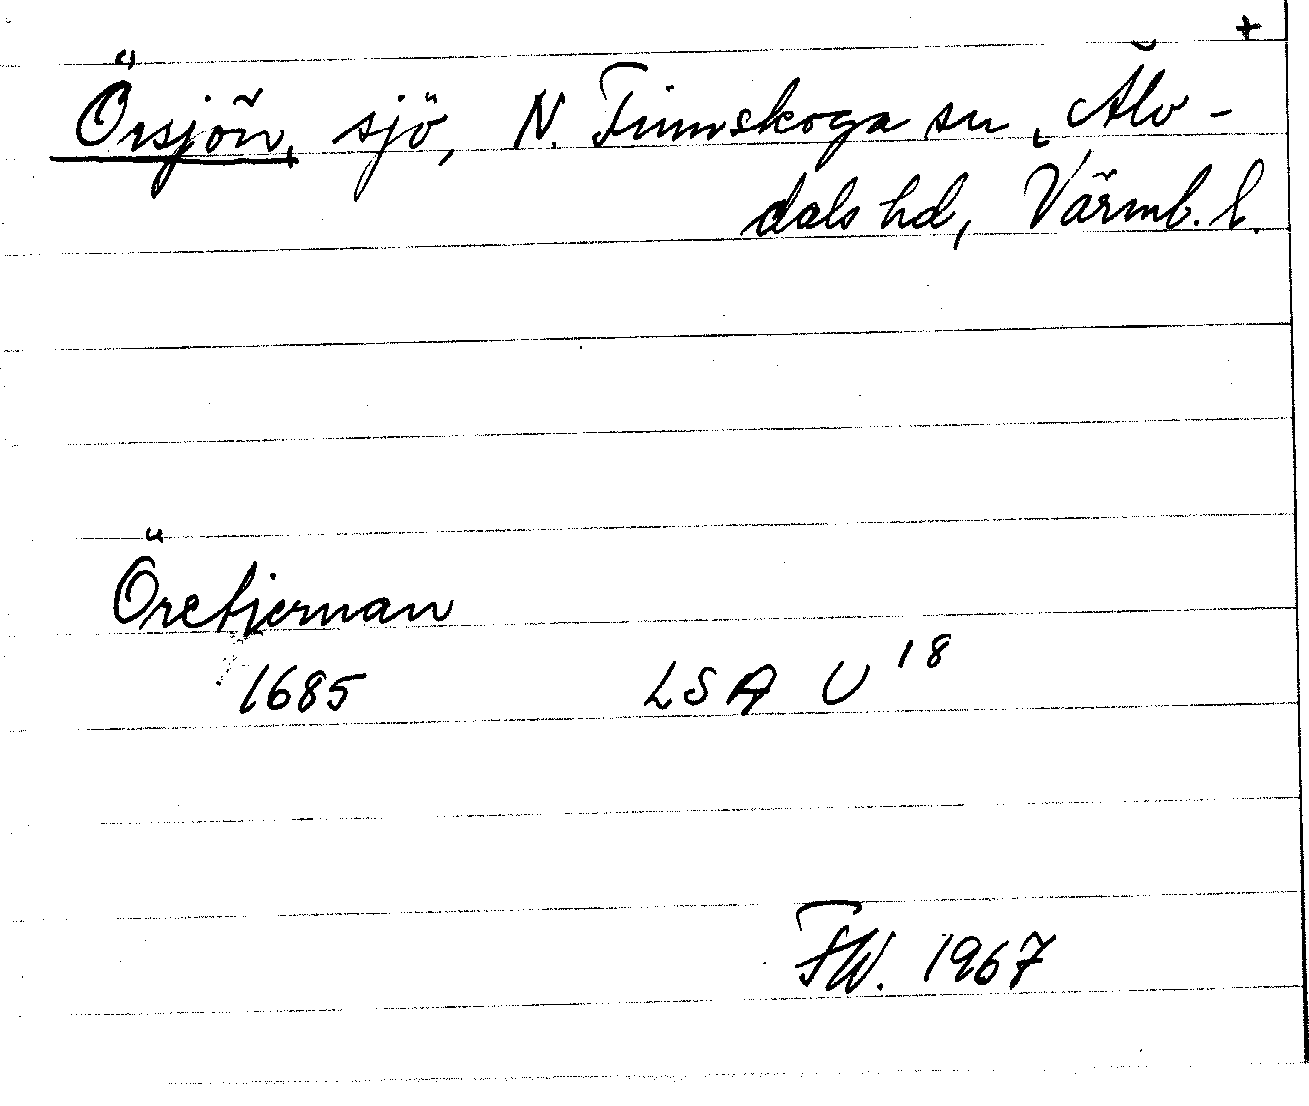 +
Örsjön, sjö, N. Finnskoga sn, Älv-
dals hd, Värml. l.
Öretjernan
1685 LSA U 18
FW. 1967